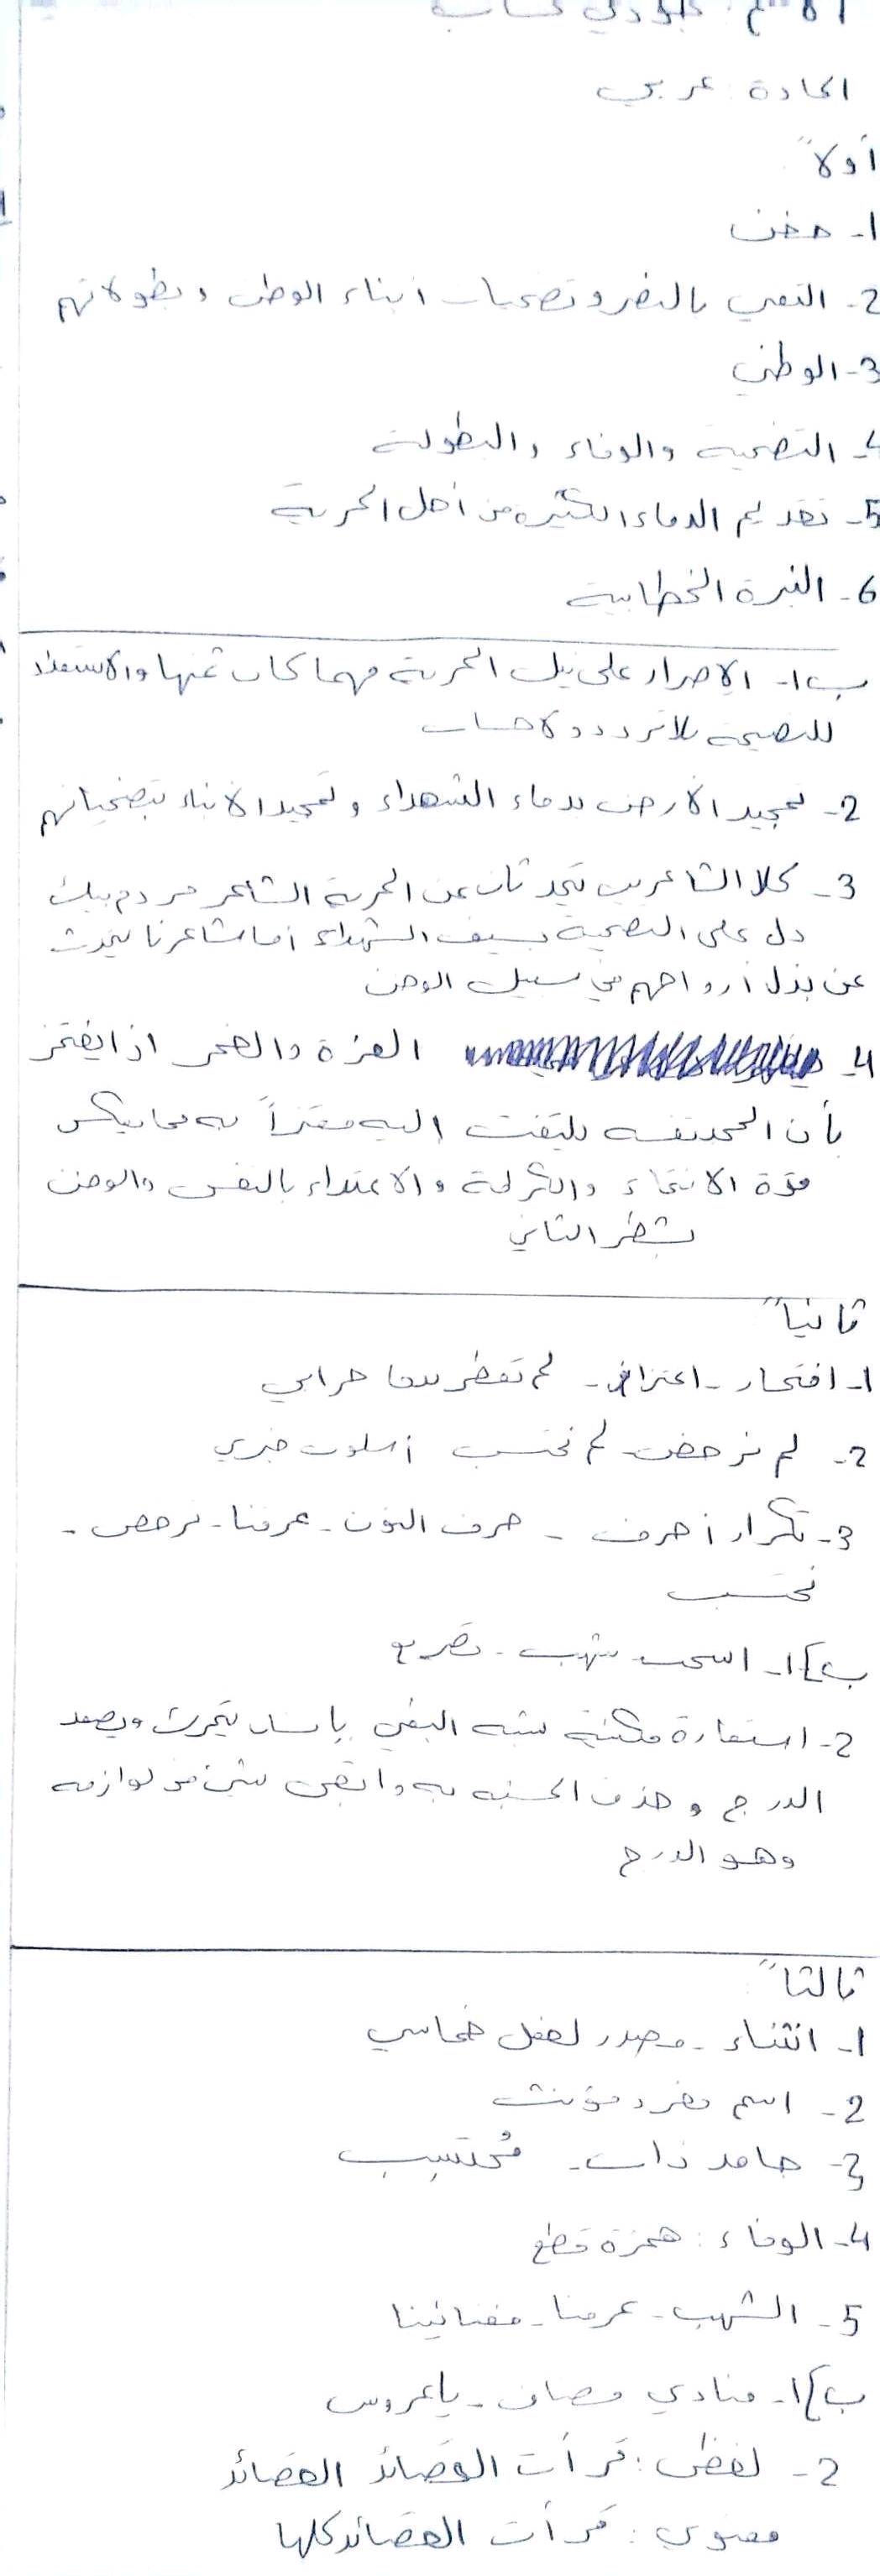 المادة: عربي
أولاً
1- خفت
2- التغني بالنصر وتضحيات أبناء الوطن وبطولاتهم
3- الوطني
4- التضحية والوفاء والبطولة
5- تقديم الدماء الكثيرة من أجل الحرية
6- النبرة الخطابية
ب 1- الإصرار على نيل الحرية مهما كان ثمنها والاستعداد
للتضحية بلا تردد ولا حساب
2- تمجيد الأرض بدماء الشهداء وتمجيد الأبناء بتضحياتهم
3- كلا الشاعرين يتحدثان عن الحرية الشاعر مردم بيك
دل على التضحية بسيف الشهداء أما شاعرنا يتحدث
عن بذل أرواحهم في سبيل الوطن
4- العزة والفخر إذا يفتخر
بأن المجد نفسه يلتفت إليه معتزاً به مما يعكس
قوة الانتماء والكرامة والاعتداد بالنفس والوطن
بشطر الثاني
ثانياً
1- افتخار - اعتزاز - لم تعطر بدما حر أبي
2- لم نرخص لم نحتسب أسلوب خبري
3- تكرار أحرف - حرف النون - عرفنا - نرخص -
نحتسب
ب] 1- اسحب شهب - تصريع
2- استعارة مكنية شبه البغي بإنسان يتحرك ويصعد
الدرج وحذف المشبه به وأبقى شيئ من لوازمه
وهو الدرج
ثالثاً
1- انثناء - مصدر لفعل خماسي
2- اسم مفرد مؤنث
3- جامد ذات - مُحتسِب
4- الوفاء: همزة قطع
5- الشهب - عرضا - مغانينا
ب] 1- منادى مضاف - يا عروس
2- لفظي: قرأت القصائد القصائد
معنوي: قرأت القصائد كلها